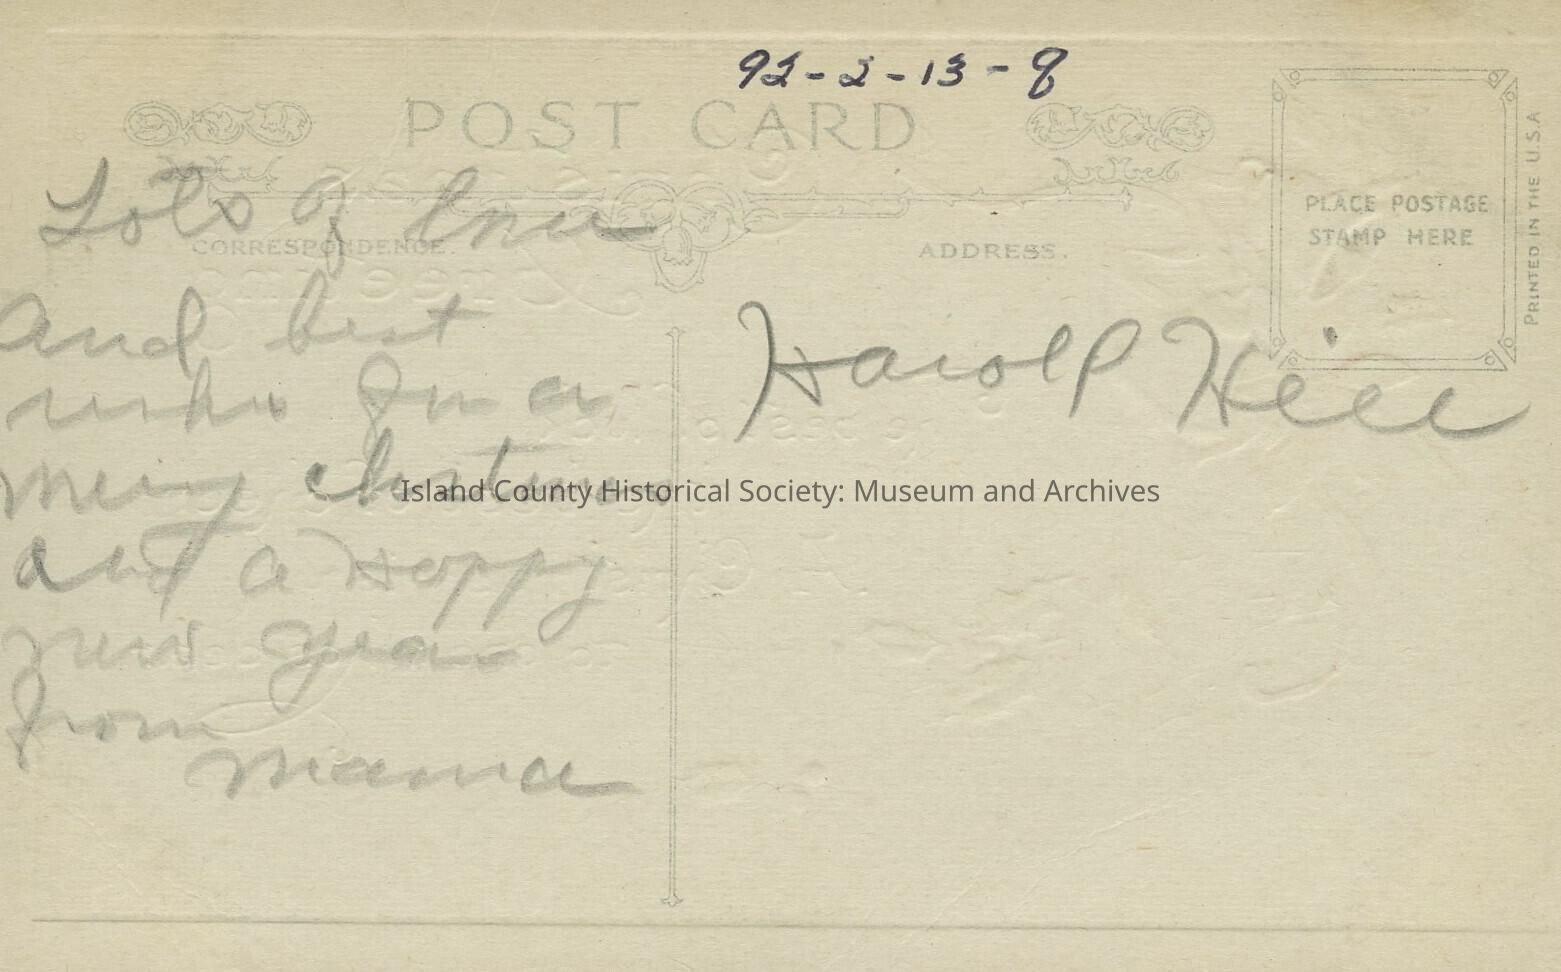 92-2-13-8
POST CARD
Lots of love
CORRESPONDENCE.
ADDRESS.
PLACE POSTAGE
STAMP HERE
PRINTED IN THE U.S.A
and best
wishes for a
merry christmas
and a Happy
new year
from
mama
Harold Hill
Island County Historical Society: Museum and Archives